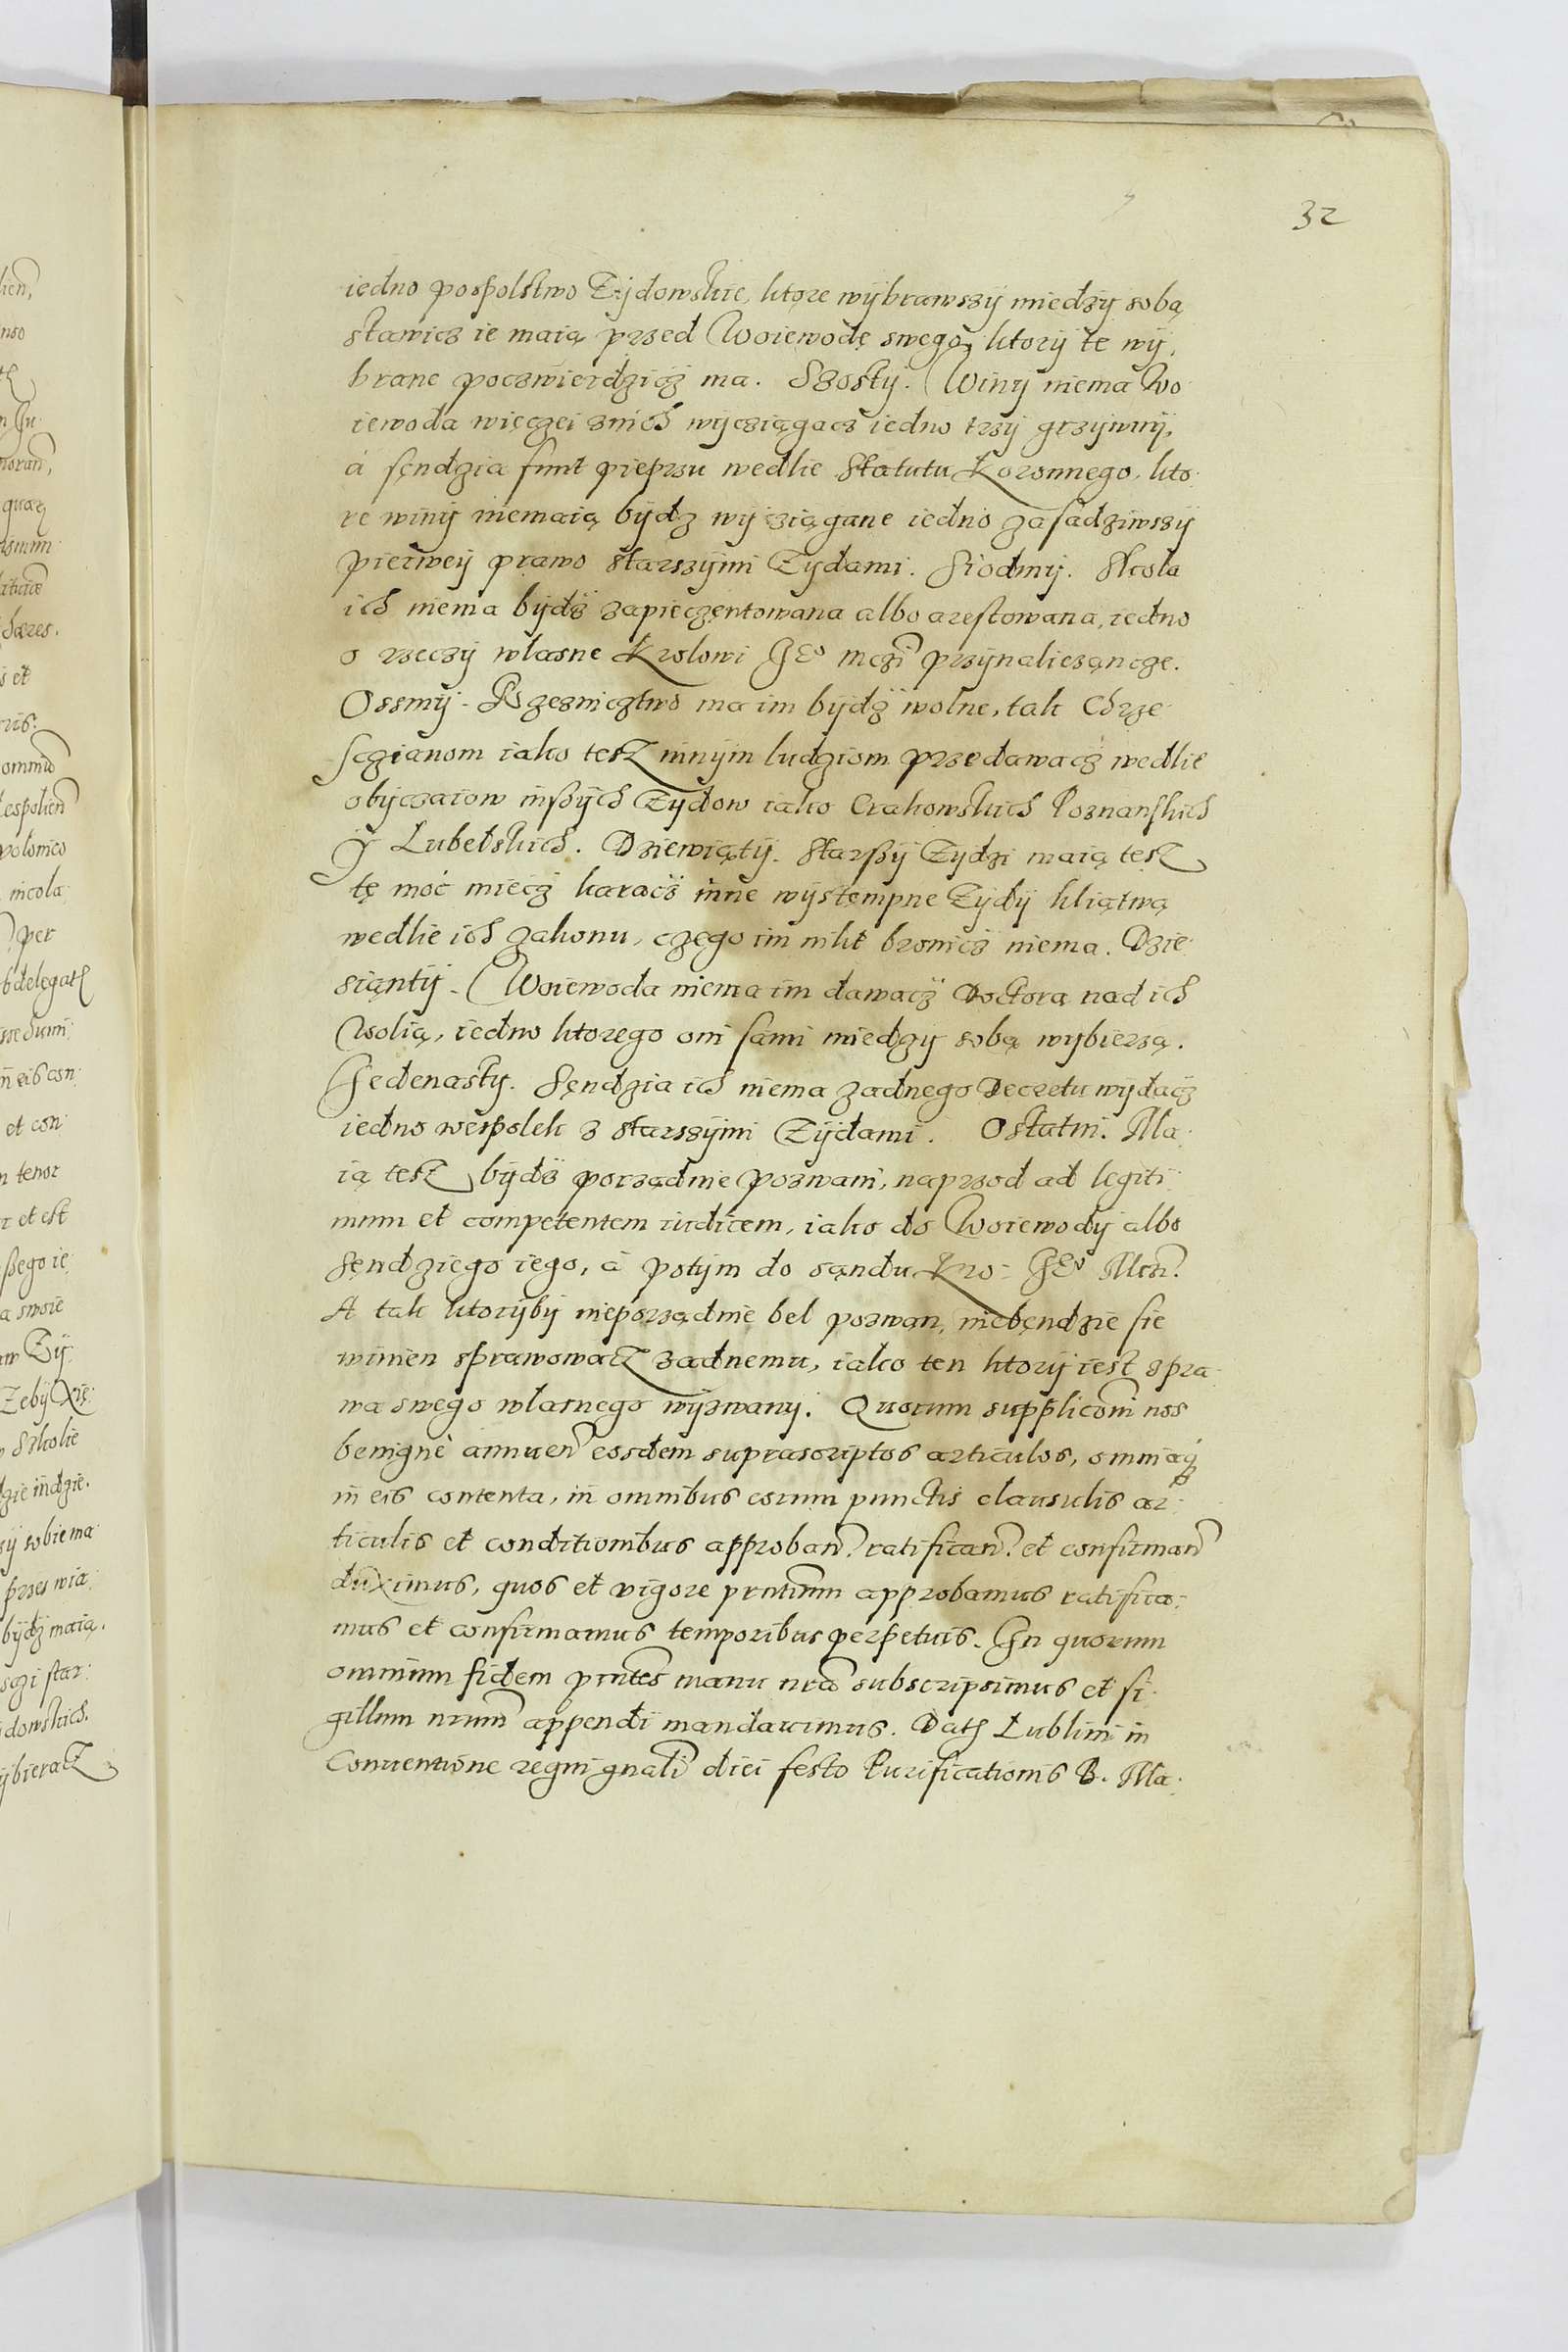 32
iedno pospolstwo Zydowskie, ktore wybrawszy miedzy sobą
stawicz ie maią przed Woiewodę swego, ktory te wy,
brane poczwierdzicz ma. Szosty. Winy niema Wo
iewoda więczei znich wycziągacz iedno trzy grzywny,
á sędzia funt pieprzu wedlie Statutu Koronnego, kto
re winy niemaią bydz wycziągane iedno zasadziwszy
pierwey prawo starszymi Zydami. Siodmy. Skola
ich niema bydz zapieczentowana albo arestowana, iedno
o rzeczy własne Krolowi JEo mczi przynaliezącze.
Osmy. Rzeznicztwo ma im bydz wolne, tak Chrze
sczianom iako tesz innym ludziom przedawacz wedlie
obyczaiow inßych Zydow iako Crakowskich Poznanskich
Y Lubelskich. Dziewiąty. Starßy Zydzi maią tesz
tę moć miecz karacz inne wystempne Zydy kliątwą
wedlie ich zakonu, czego im nikt bronicz niema. Dzie
siąnty. Woiewoda niema im dawacz Doctora nad ich
Wolią, iedno ktorego oni sami miedzy sobą wybierzą.
Jedenasty. Sęndzia ich niema zadnego Decretu wydacz
iedno wespolek z starszymi Zydami. Ostatni. Ma
ią tesz bydz porządnie pozwani, naprzod ad legiti
mum et competentem iudicem, iako do Woiewody albo
Sęndziego iego, á potym do sąndu Kro: JEo Mczi.
A tak ktoryby nieporządnie bel pozwan, niebęndzie sie
winien sprawowacz zadnemu, iako ten ktory iest z pra
wa swego własnego wyzwany. Quorum supplicōni nos
benignè annuen eosdem suprascriptos articulos, omniaq̃
in eis contenta, in omnibus eorum punctis clausulis ar
ticulis et conditionibus approban? ratifican? et confirman
duximus, quos et vigore pntium approbamus ratifica
mus et confirmamus temporibus perpetuis. In quorum
omnium fidem pntes manu nrā subscripsimus et si
gillum nrum appendi mandauimus. Dat Lublini in
Conuentione regni gnali diei festo Purificationis B. Ma